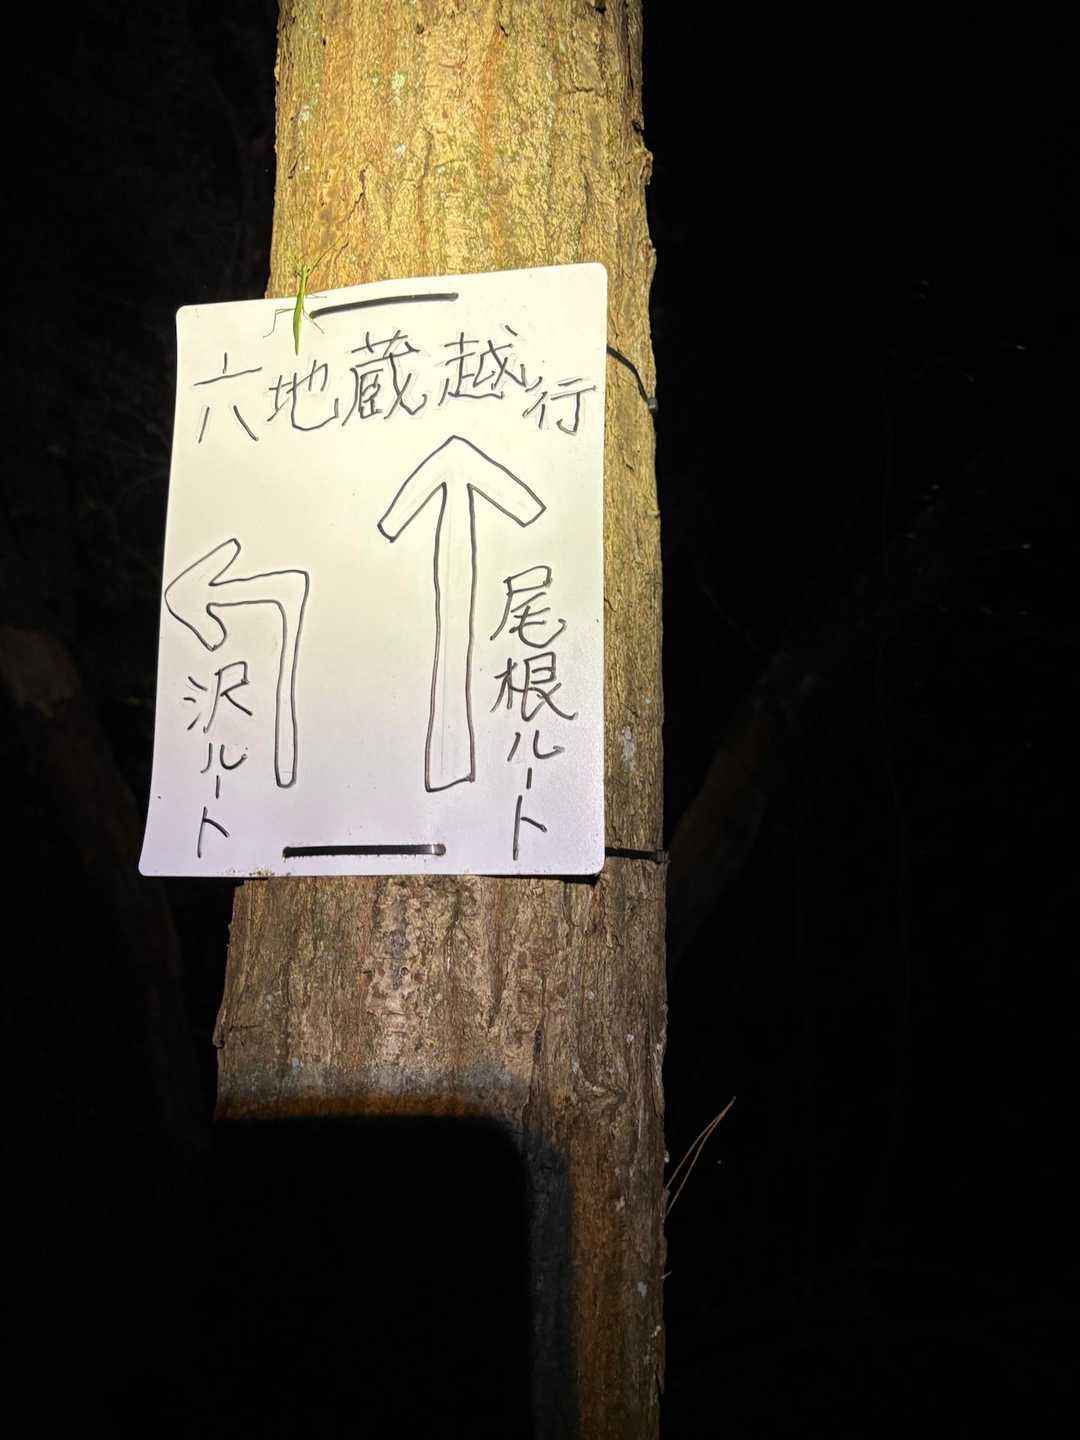 六地蔵越行
尾根ルート
沢ルート